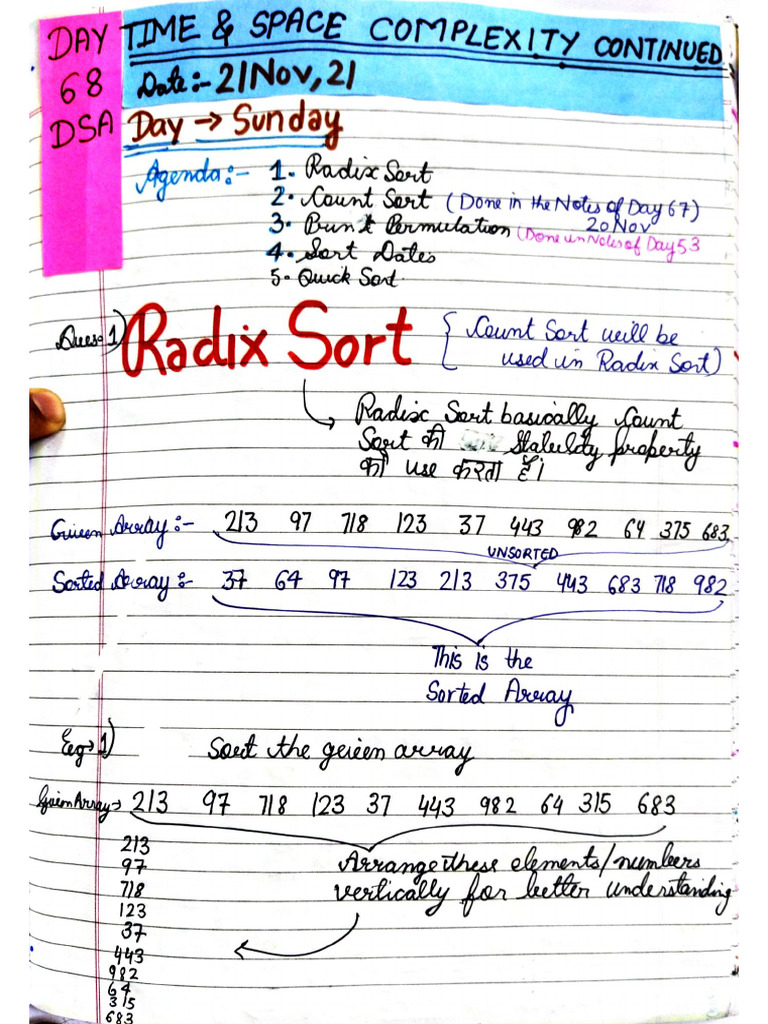 DAY
68
DSA
TIME & SPACE COMPLEXITY CONTINUED
Date:- 21 Nov, 21
Day → Sunday
Agenda:- 1. Radix Sort
2. Count Sort (Done in the Notes of Day 67)
20 Nov
3. Print Permutation (Done in Notes of Day 53
4. Sort Dates
5. Quick Sort
Ques 1) Radix Sort { Count Sort will be
used in Radix Sort)
Radix Sort basically Count
Sort की Stability property
को use करता है।
Given Array:- 213 97 718 123 37 443 982 64 375 683
UNSORTED
Sorted Array:- 37 64 97 123 213 375 443 683 718 982
This is the
Sorted Array
Eg→ 1) Sort the given array
Given Array→ 213 97 718 123 37 443 982 64 315 683
Arrange these elements/numbers
vertically for better understanding
213
97
718
123
37
443
982
64
315
683